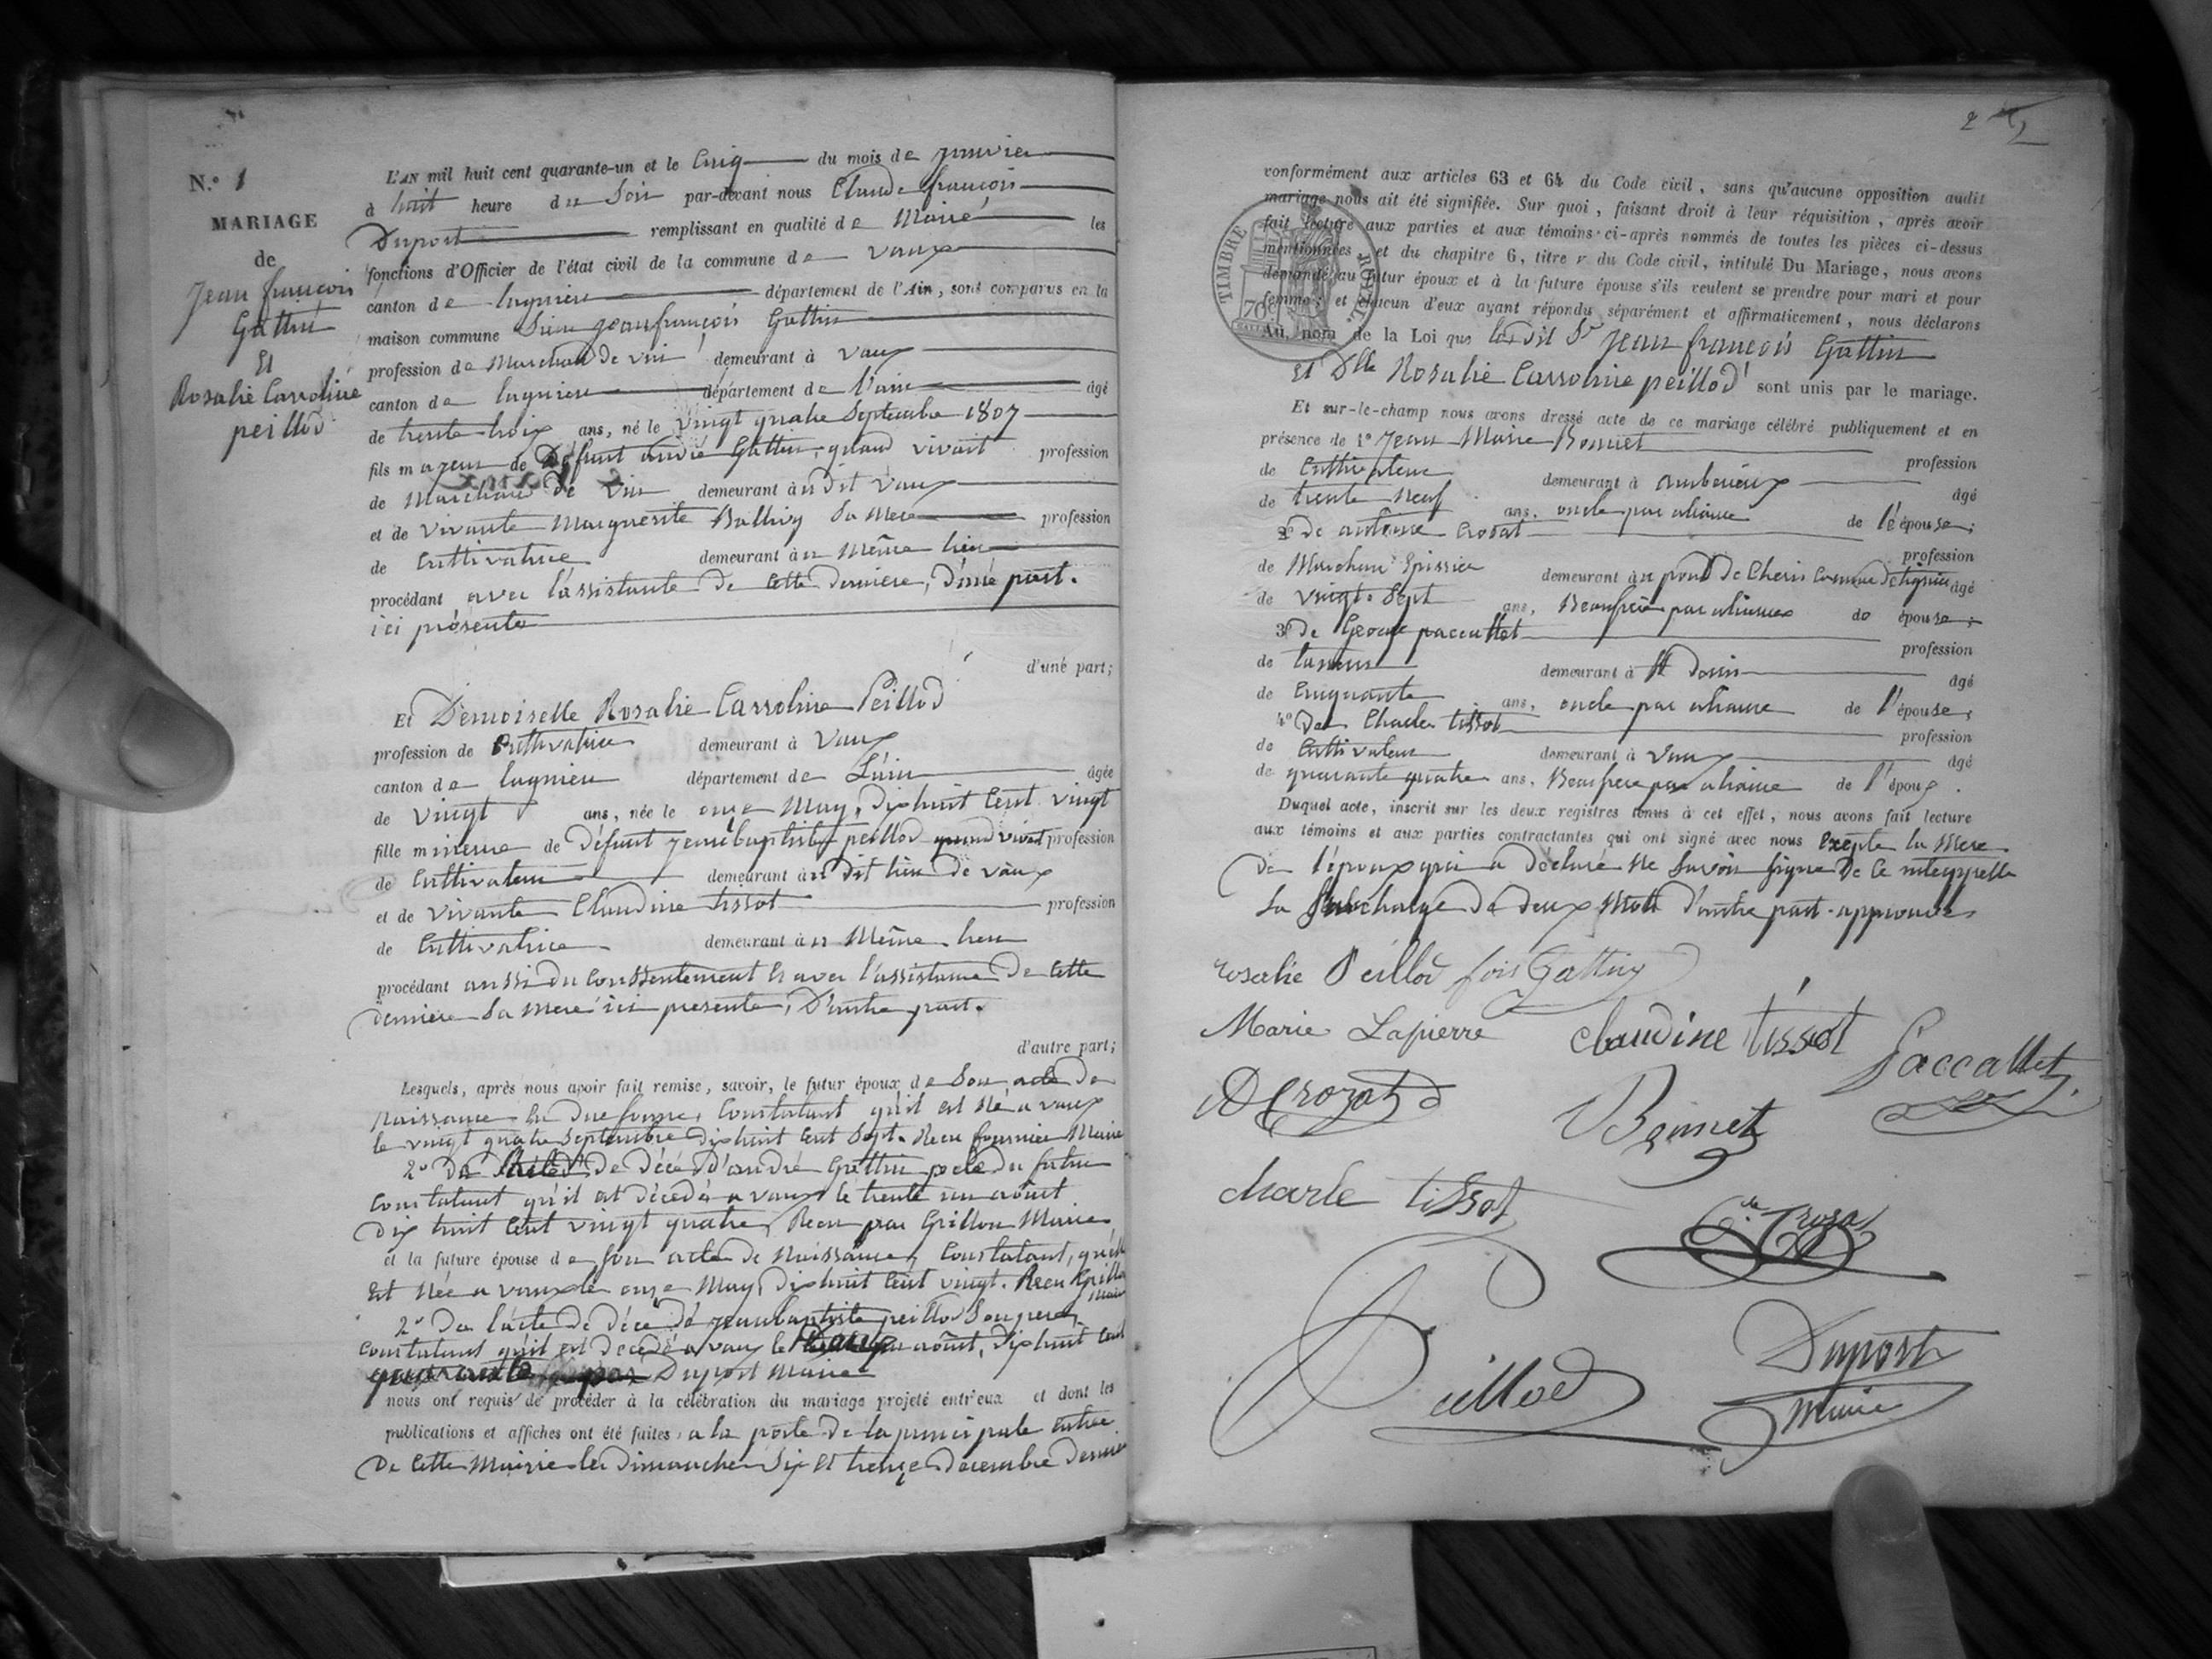 N.° 1
MARIAGE
de
Jean françois
Gattin
Et
Rosalie Carroline
peillod
L'AN mil huit cent quarante-un et le Cinq du mois de Janvier
à huit heure du Soir par-devant nous Claude françois
Duport remplissant en qualité de Maire les
fonctions d'Officier de l'état civil de la commune de Vaux
canton de lagnieu département de l'Ain, sont comparus en la
maison commune Sieur Jeanfrançois Gattin
profession de Marchand de vin demeurant à Vaux
canton de lagnieu département de l'ain âgé
de trente trois ans, né le vingt quatre Septembre 1807
fils majeur de Défunt andré Gattin, quand vivait profession
de Marchand de vin demeurant à u dit Vaux
et de vivante Marguerite Ballivy Sa Mere profession
de Cultivatrice demeurant à u Même lieu
procédant avec l'assistante de Cette derniere, d'une part.
ici présente
d'une part;
Et Demoiselle Rosalie Carroline Peillod
profession de Cultivatrice demeurant à Vaux
canton de lagnieu département de L'ain âgée
de vingt ans, née le onze May, dixhuit Cent vingt
fille mineure de Défunt Jean baptiste peillod quand vivait profession
de Cultivateur demeurant à u dit lieu de vaux
et de vivante Claudine tissot profession
de Cultivatrice demeurant à u Même lieu
procédant aussi du Conssentement & avec l'assistance De Cette
derniere Sa Mere ici presente, D'autre part.
d'autre part;
Lesquels, après nous avoir fait remise, savoir, le futur époux de Son acte De
Naissance En due forme, Constatant qu'il est Né a vaux
le vingt quatre Septembre dixhuit Cent Sept. Recu fournier Maire
2° De de décé D'andré Gattin pere du futur
Constatant qu'il est décédé a vaux le trente un aôut
Dix huit Cent vingt quatre, Recu par Grillon Maire
et la future épouse de Son acte de Naissance, Constatant, qu'elle
Est Née a vaux le onze May, dixhuit Cent vingt. Recu Grillon
Maire
2° De l'acte De décé de Jeanbaptiste peillod Son pere,
Constatant qu'il est decedé a vaux le aôut, Dixhuit Cent
quarante par Duport Maire
nous ont requis de procéder à la célébration du mariage projeté entr'eux et dont les
publications et affiches ont été faites, a la porte de la principale Entrée
De Cette Mairie les Dimanches Six Et treize decembre Dernier
2
conformément aux articles 63 et 64 du Code civil, sans qu'aucune opposition audit
mariage nous ait été signifiée. Sur quoi, faisant droit à leur réquisition, après avoir
fait lecture aux parties et aux témoins ci-après nommés de toutes les pièces ci-dessus
mentionnées et du chapitre 6, titre v du Code civil, intitulé Du Mariage, nous avons
demandé au futur époux et à la future épouse s'ils veulent se prendre pour mari et pour
femme; et chacun d'eux ayant répondu séparément et affirmativement, nous déclarons
Au nom de la Loi que le dit Sr Jean françois Gattin
Et Dlle Rosalie Carroline peillod sont unis par le mariage.
TIMBRE ROYAL.
70c
Et sur-le-champ nous avons dressé acte de ce mariage célébré publiquement et en
présence de 1° Jean Marie Bonnet profession
de Cultivateur demeurant à amberieux âgé
de trente Neuf ans, oncle par aliance de l'épouse;
2° De antoine Crozat profession
de Marchand Epissier demeurant à u pont De Cherin Commune de lagnieu âgé
de vingt Sept ans, Beaufrère par aliance de épouse;
3° De George paccallet profession
de taneur demeurant à St Denis âgé
de Cinquante ans, oncle par aliance de l'épouse;
4° De Charles tissot profession
de Cultivateur demeurant à Vaux âgé
de quarante quatre ans, Beaufrere par aliance de l'époux.
Duquel acte, inscrit sur les deux registres tenus à cet effet, nous avons fait lecture
aux témoins et aux parties contractantes qui ont signé avec nous Exepte la Mere
De l'époux qui a déclaré Ne Savoir Signe De Ce interppelle
La Surcharge De deux Mots D'autre part approuvée
rosalie Peillod fois Gattin
Marie Lapierre Claudine tissot Paccallet
A Crozat Bonnet
charle tissot Crozat
Peillod Duport
Maire